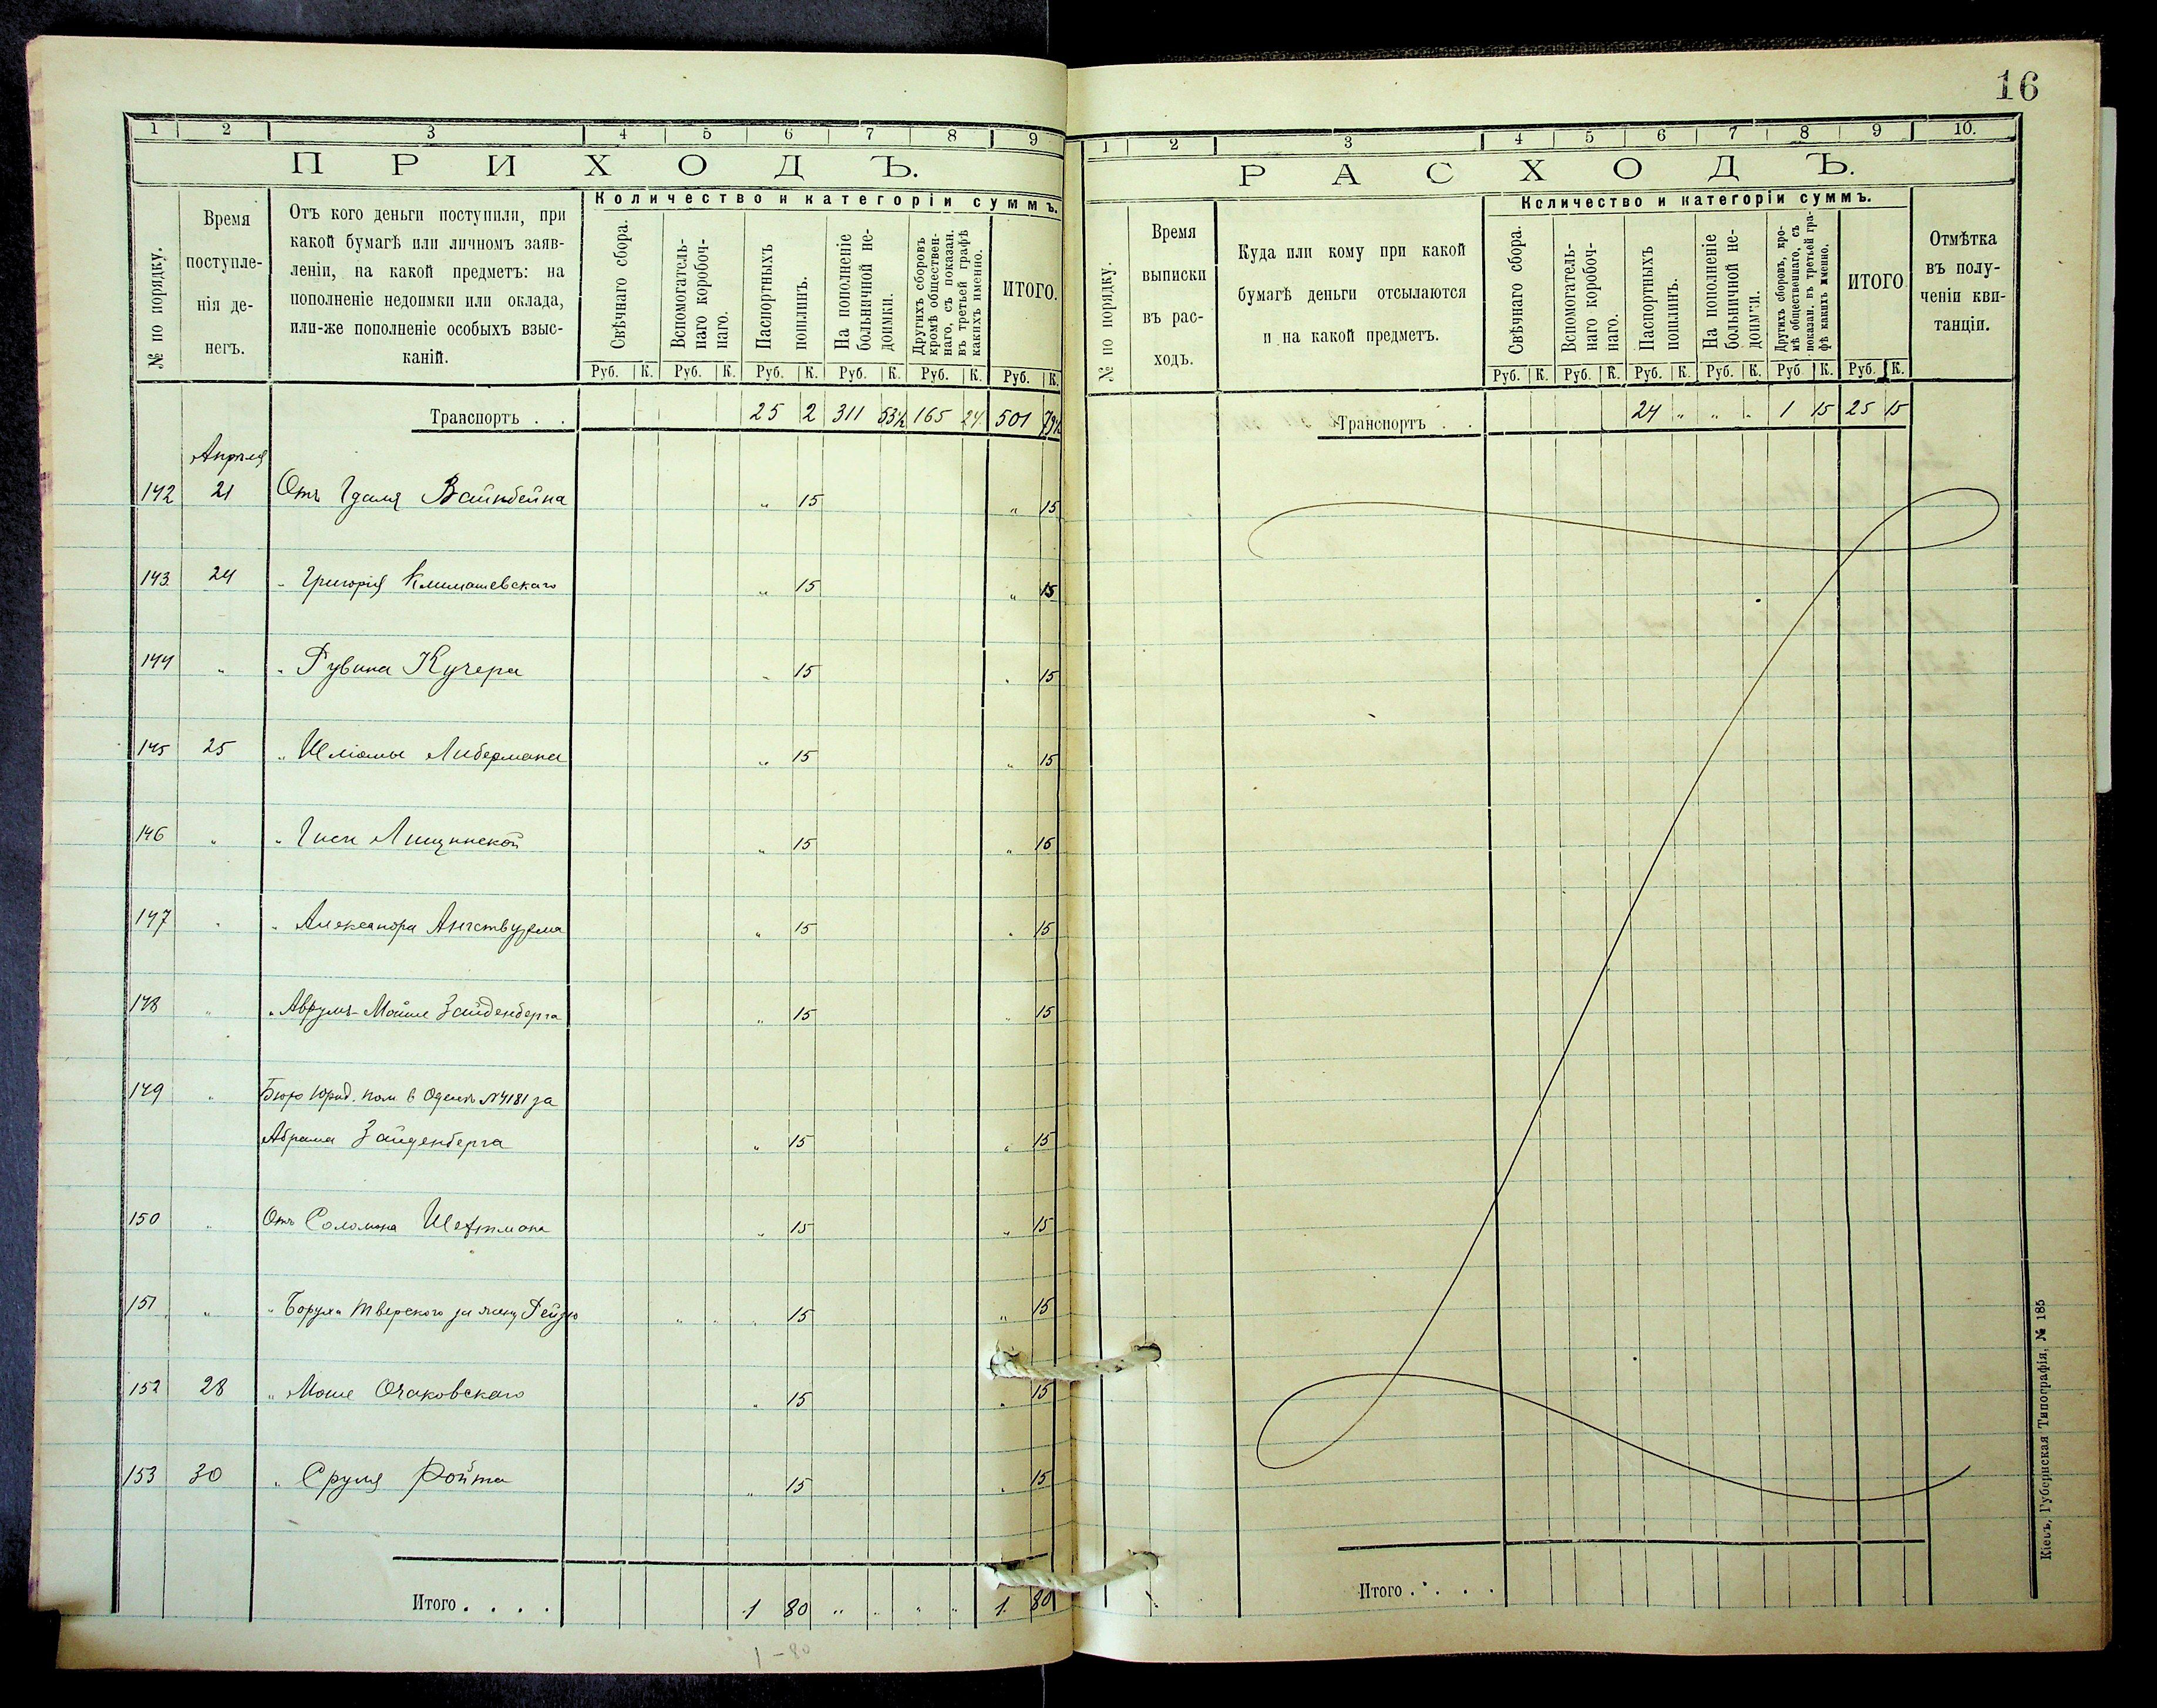 16
1 2 3 4 5 6 7 8 9
ПРИХОДЪ.
№ по порядку.
Время
поступле-
нія де-
негъ.
Отъ кого деньги поступили, при
какой бумагѣ или личномъ заяв-
леніи, на какой предметъ: на
пополненіе недоимки или оклада,
или-же пополненіе особыхъ взыс-
каній.
Количество и категоріи суммъ.
Свѣчнаго сбора.
Вспомогатель-
наго коробоч-
наго.
Паспортныхъ
пошлинъ.
На пополненіе
больничной не-
доимки.
Другихъ сборовъ
кромѣ обществен-
наго, съ показан.
въ третьей графѣ
какихъ именно.
ИТОГО.
Руб. К. Руб. К. Руб. К. Руб. К. Руб. К. Руб. К.
Транспортъ . . 25 2 311 53½ 165 24 501 79½
Апрѣля
142 21 Отъ Гдаля Вайнбейна " 15 " 15
143 24 " Григорія Климашевскаго " 15 " 15
144 " " Рувина Кучера " 15 " 15
145 25 " Шліомы Либермана " 15 " 15
146 " " Гиси Лищинской " 15 " 15
147 " " Александра " 15 " 15
148 " " Аврумъ-Мойше Зайденберга " 15 " 15
149 " Бюро Юрид. пом. в Одессѣ №4181 за
Абрама Зайденберга " 15 " 15
150 " Отъ Соломона Шехтмана " 15 " 15
151 " " Боруха Тверского за жену Рейзю " " " 15 " 15
152 28 " Моше Очаковскаго " 15 " 15
153 30 " Сруля Ройта " 15 " 15
Итого . . . . 1 80 " " " " 1 80
1-80
1 2 3 4 5 6 7 8 9 10.
РАСХОДЪ.
№ по порядку.
Время
выписки
въ рас-
ходъ.
Куда или кому при какой
бумагѣ деньги отсылаются
и на какой предметъ.
Количество и категоріи суммъ.
Свѣчнаго сбора.
Вспомогатель-
наго коробоч-
наго.
Паспортныхъ
пошлинъ.
На пополненіе
больничной не-
доимки.
Другихъ сборовъ, кро-
мѣ общественнаго, съ
показан. въ третьей гра-
фѣ какихъ именно.
ИТОГО
Отмѣтка
въ полу-
ченіи кви-
танціи.
Руб. К. Руб. К. Руб. К. Руб. К. Руб К. Руб. К.
Транспортъ . . 24 " " " 1 15 25 15
Итого . . . .
Кіевъ, Губернская Типографія, № 185